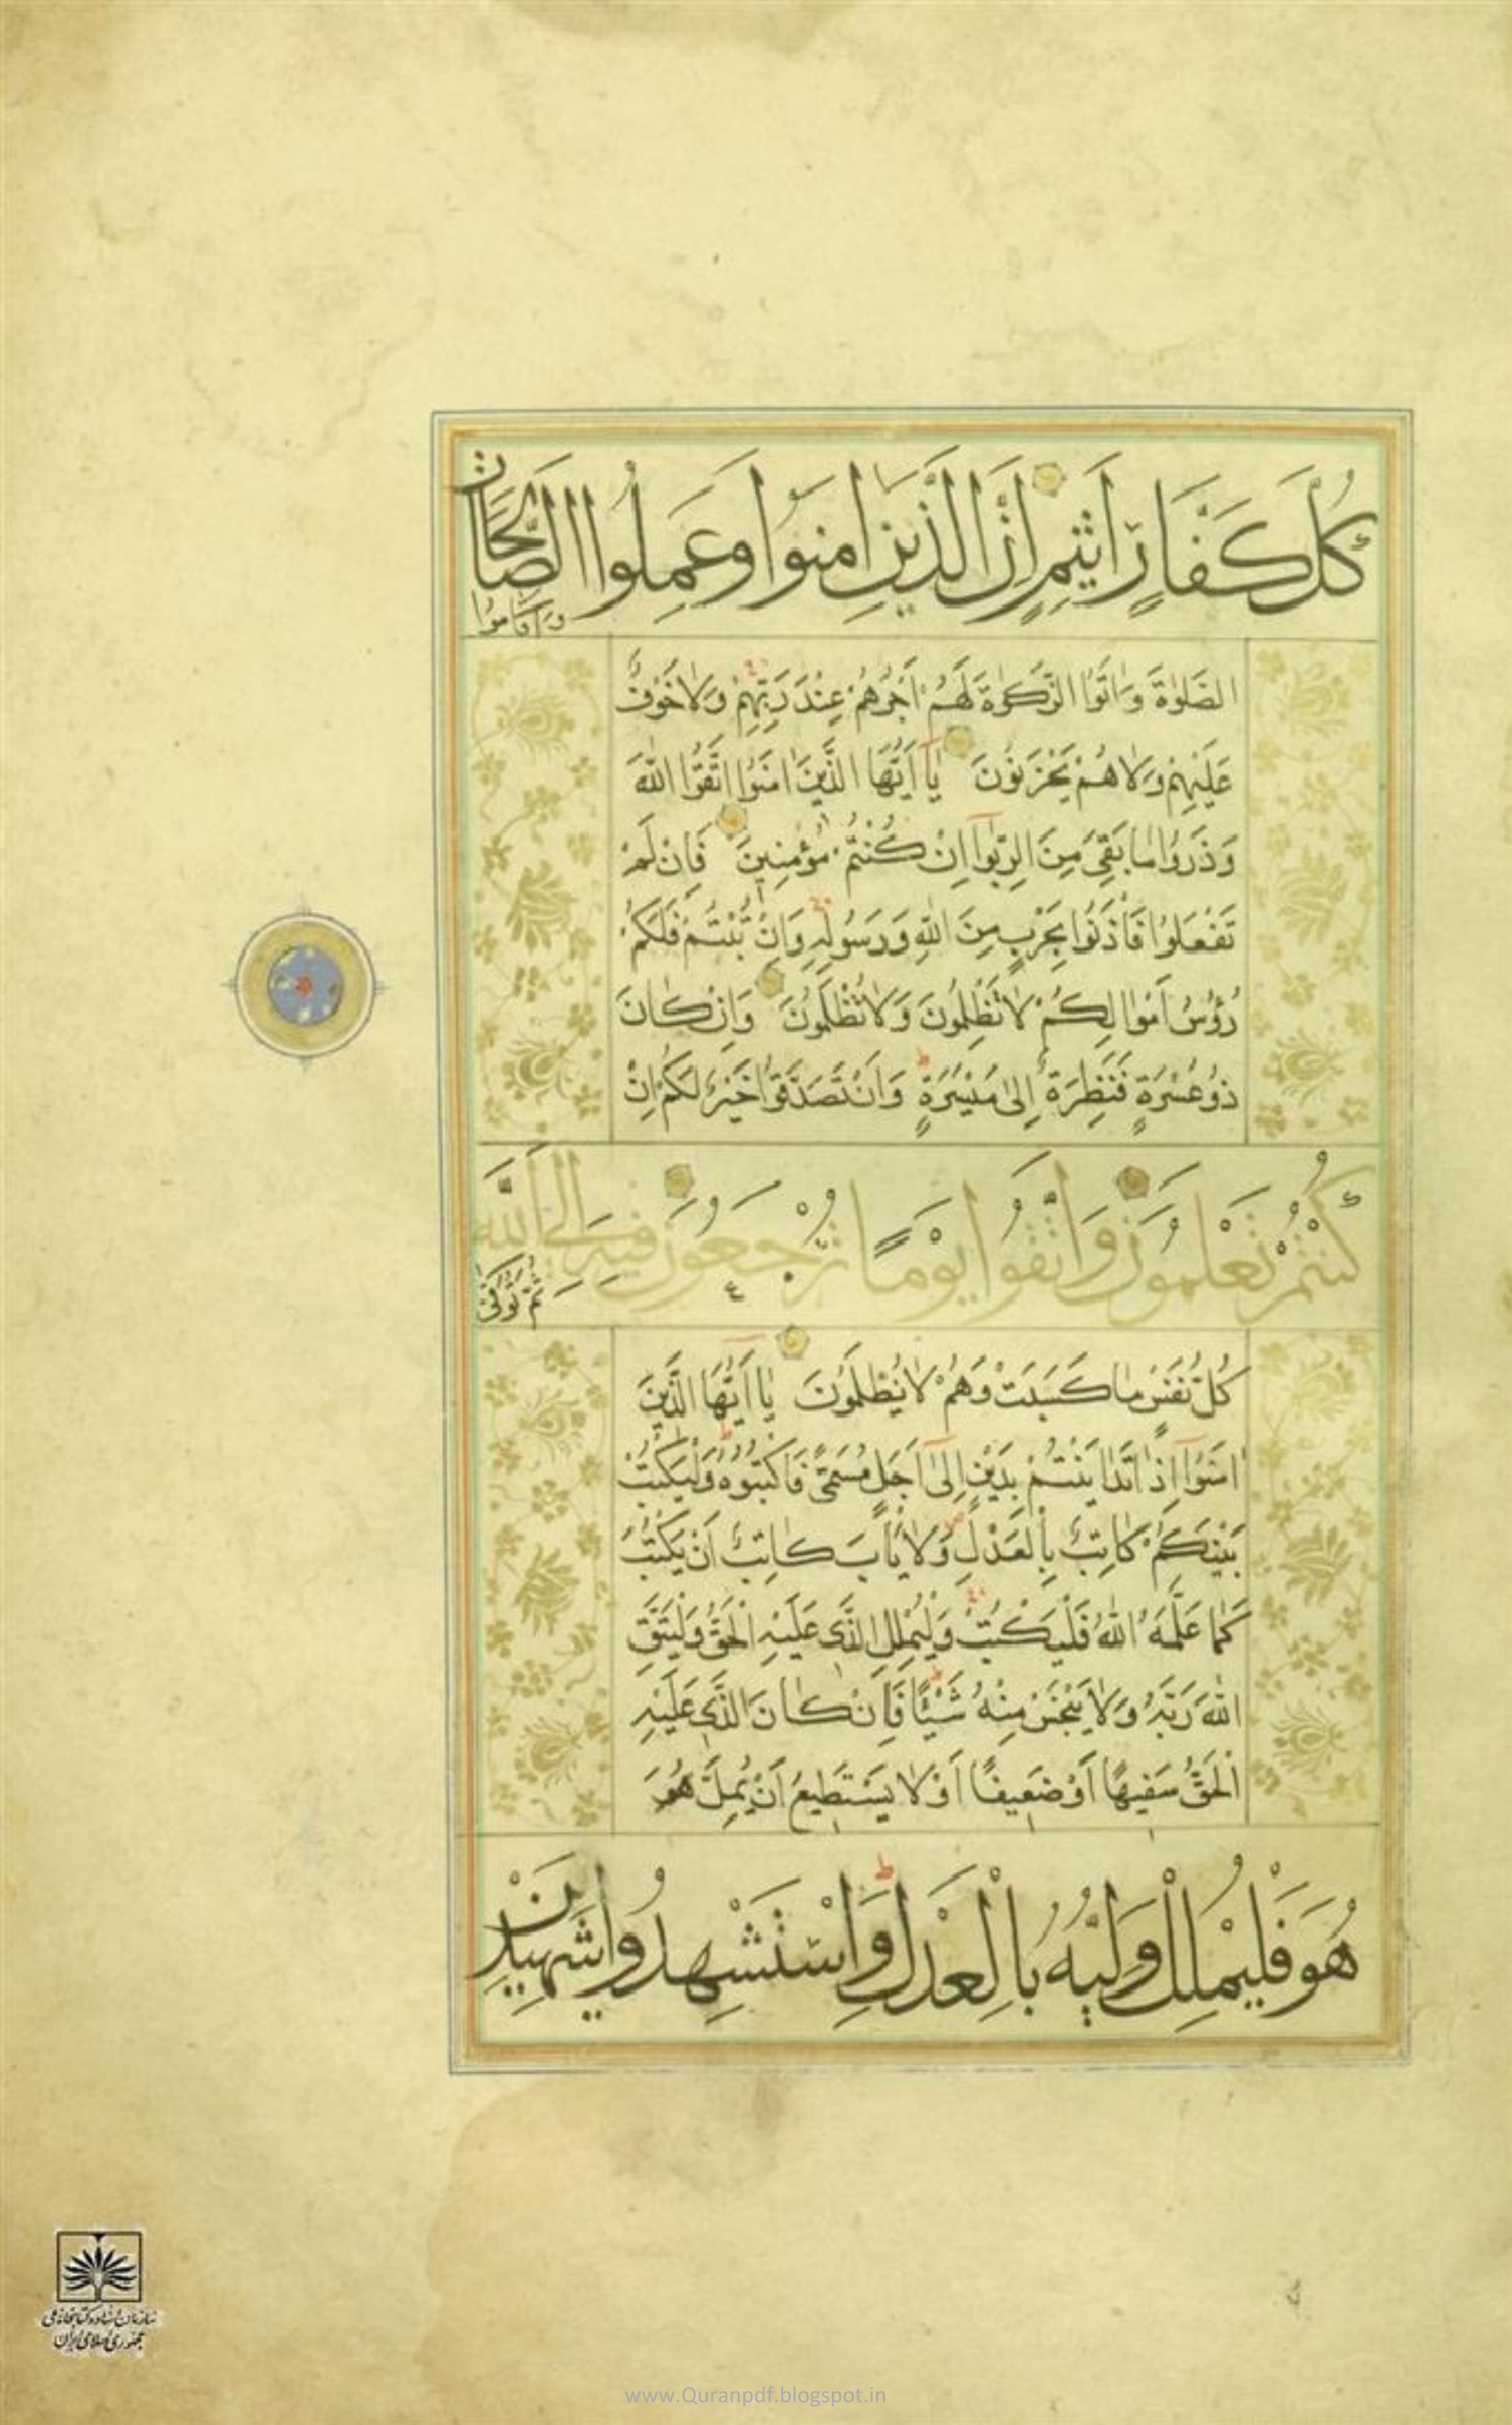 كُلَّ كَفَّارٍ أَثِيمٍ إِنَّ الَّذِينَ امَنُوا وَعَمِلُوا الصَّالِحَاتِ
وَاَقَامُوا
الصَّلٰوةَ وَاٰتَوُا الزَّكٰوةَ لَهُمْ اَجْرُهُمْ عِنْدَ رَبِّهِمْ وَلَا خَوْفٌ
عَلَيْهِمْ وَلَا هُمْ يَحْزَنُونَ يَا اَيُّهَا الَّذِينَ اٰمَنُوا اتَّقُوا اللّٰهَ
وَذَرُوا مَا بَقِيَ مِنَ الرِّبٰوا اِنْ كُنْتُمْ مُؤْمِنِينَ فَاِنْ لَمْ
تَفْعَلُوا فَأْذَنُوا بِحَرْبٍ مِنَ اللّٰهِ وَرَسُولِهِ وَاِنْ تُبْتُمْ فَلَكُمْ
رُؤُسُ اَمْوَالِكُمْ لَا تَظْلِمُونَ وَلَا تُظْلَمُونَ وَاِنْ كَانَ
ذُو عُسْرَةٍ فَنَظِرَةٌ اِلٰى مَيْسَرَةٍ وَاَنْ تَصَدَّقُوا خَيْرٌ لَكُمْ اِنْ
كُنْتُمْ تَعْلَمُونَ وَاتَّقُوا يَوْمًا تُرْجَعُونَ فِيهِ اِلَى اللّٰهِ
ثُمَّ تُوَفّٰى
كُلُّ نَفْسٍ مَا كَسَبَتْ وَهُمْ لَا يُظْلَمُونَ يَا اَيُّهَا الَّذِينَ
اٰمَنُوا اِذَا تَدَايَنْتُمْ بِدَيْنٍ اِلٰى اَجَلٍ مُسَمًّى فَاكْتُبُوهُ وَلْيَكْتُبْ
بَيْنَكُمْ كَاتِبٌ بِالْعَدْلِ وَلَا يَأْبَ كَاتِبٌ اَنْ يَكْتُبَ
كَمَا عَلَّمَهُ اللّٰهُ فَلْيَكْتُبْ وَلْيُمْلِلِ الَّذِي عَلَيْهِ الْحَقُّ وَلْيَتَّقِ
اللّٰهَ رَبَّهُ وَلَا يَبْخَسْ مِنْهُ شَيْئًا فَاِنْ كَانَ الَّذِي عَلَيْهِ
الْحَقُّ سَفِيهًا اَوْ ضَعِيفًا اَوْ لَا يَسْتَطِيعُ اَنْ يُمِلَّ هُوَ
هُوَ فَلْيُمْلِلْ وَلِيُّهُ بِالْعَدْلِ وَاسْتَشْهِدُوا شَهِيدَيْنِ
سازمان اسناد و کتابخانه ملی
جمهوری اسلامی ایران
www.Quranpdf.blogspot.in